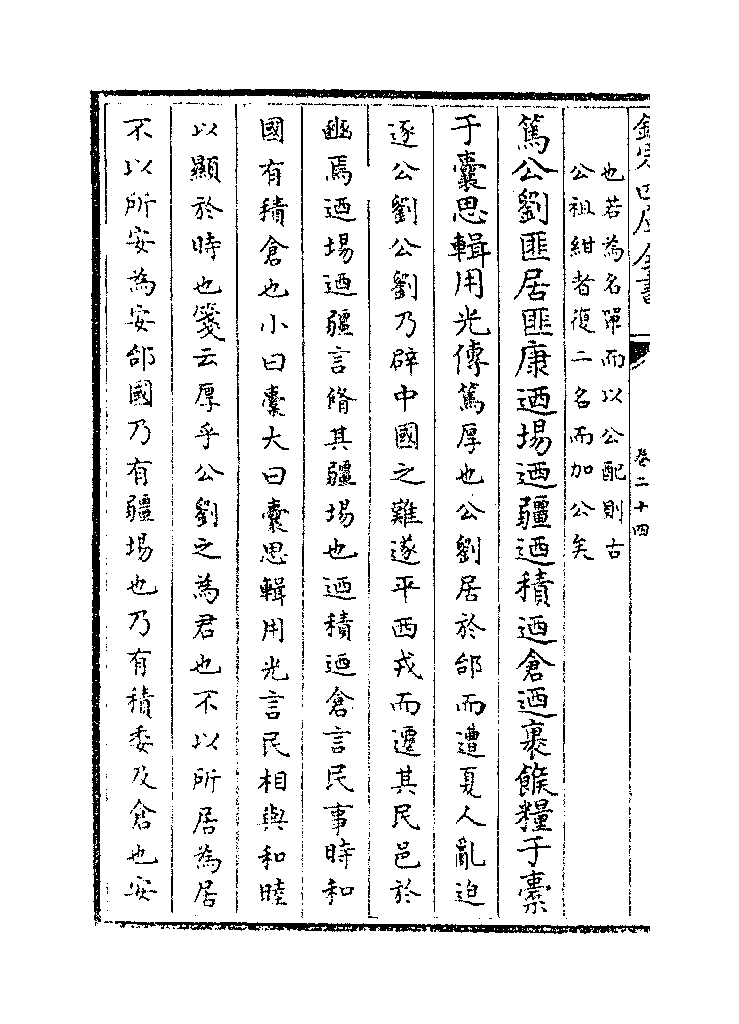 欽定四庫全書
卷二十四
也若為名單而以公配則古
公祖紺者復二名而加公矣
篤公劉匪居匪康迺場迺疆迺積迺倉迺裹餱糧于橐
于囊思輯用光傳篤厚也公劉居於邰而遭夏人亂迫
逐公劉公劉乃辟中國之難遂平西戎而遷其民邑於
豳焉迺場迺疆言脩其疆場也迺積迺倉言民事時和
國有積倉也小曰橐大曰囊思輯用光言民相與和睦
以顯於時也箋云厚乎公劉之為君也不以所居為居
不以所安為安邰國乃有疆場也乃有積委及倉也安